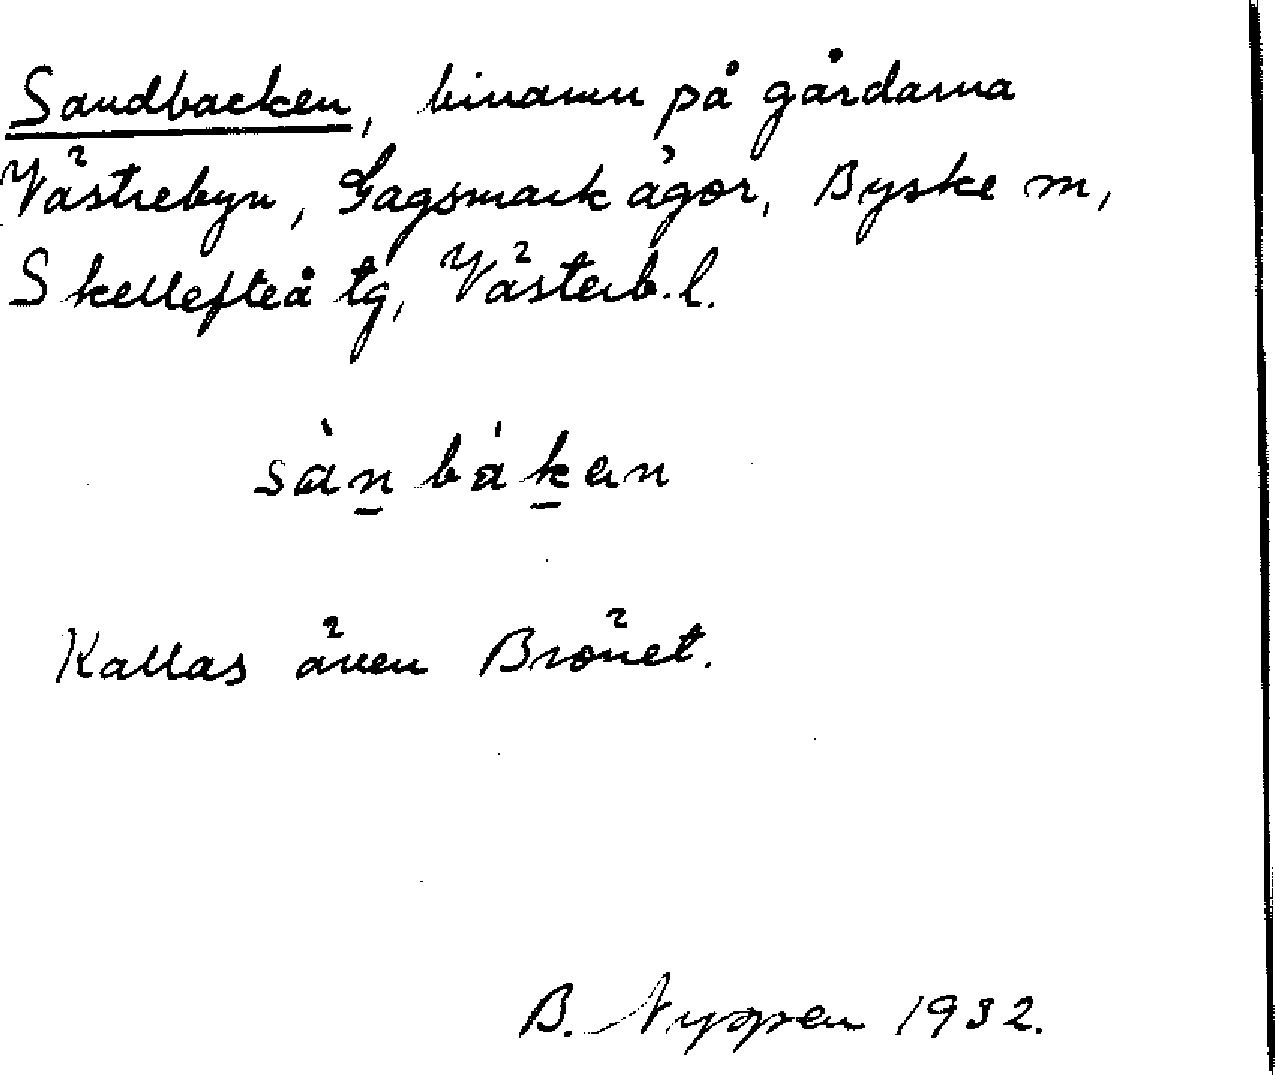 Sandbacken, binamn på gårdarna
Västrebyn, Gagsmark ägor, Byske sn,
Skellefteå tg, Västerb. l.
sàn̲ bák̲en
Kallas även Brönet.
B. Nyppen 1932.